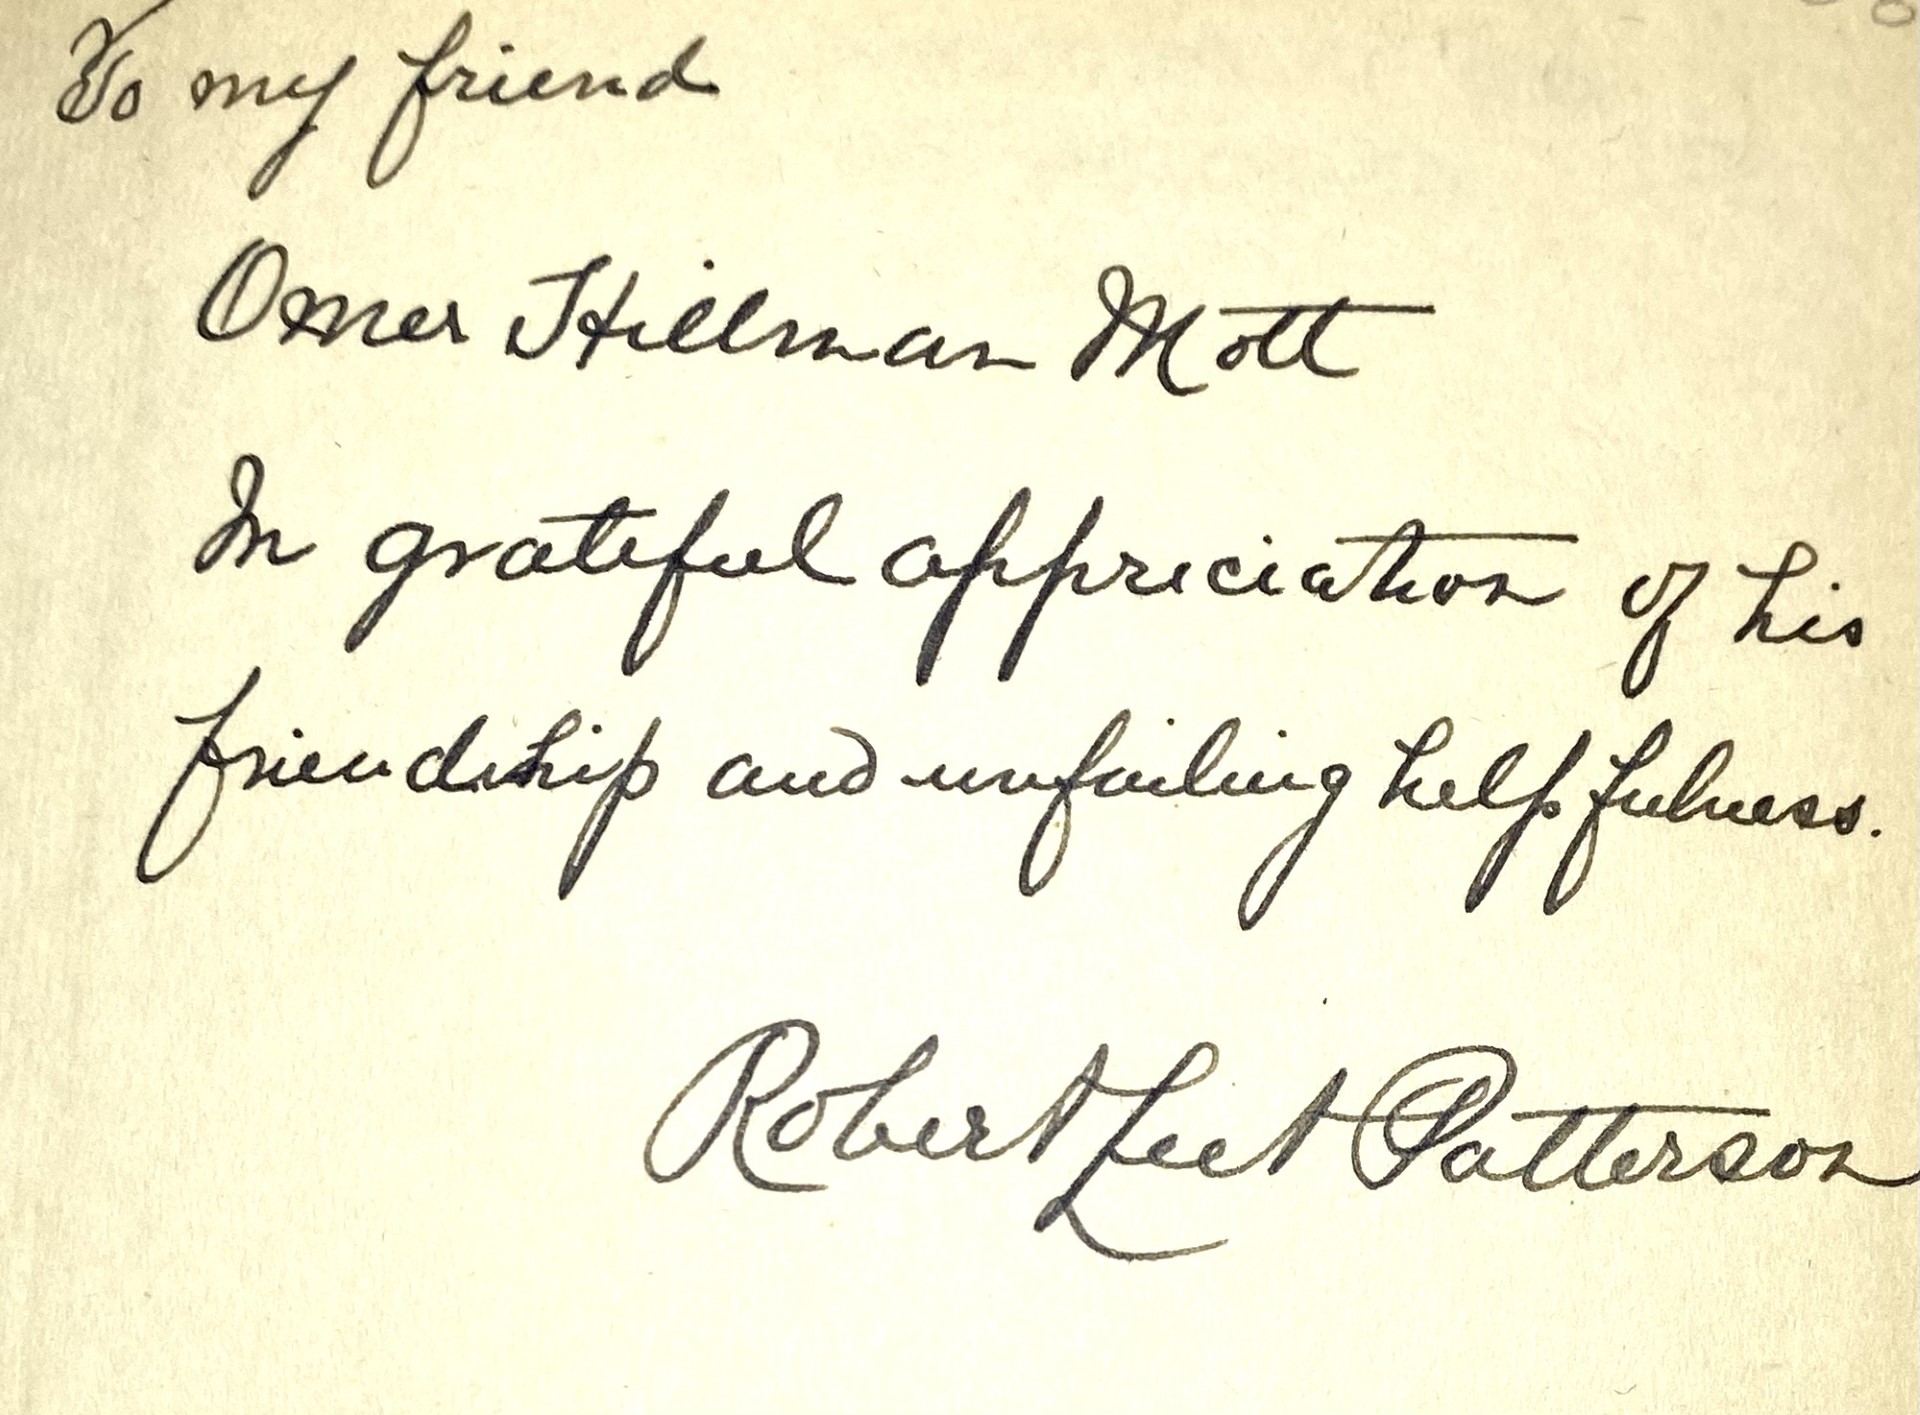 To my friend
Omer Hillman Mott
In grateful appreciation of his
friendship and unfailing helpfulness.
Robert Leet Patterson